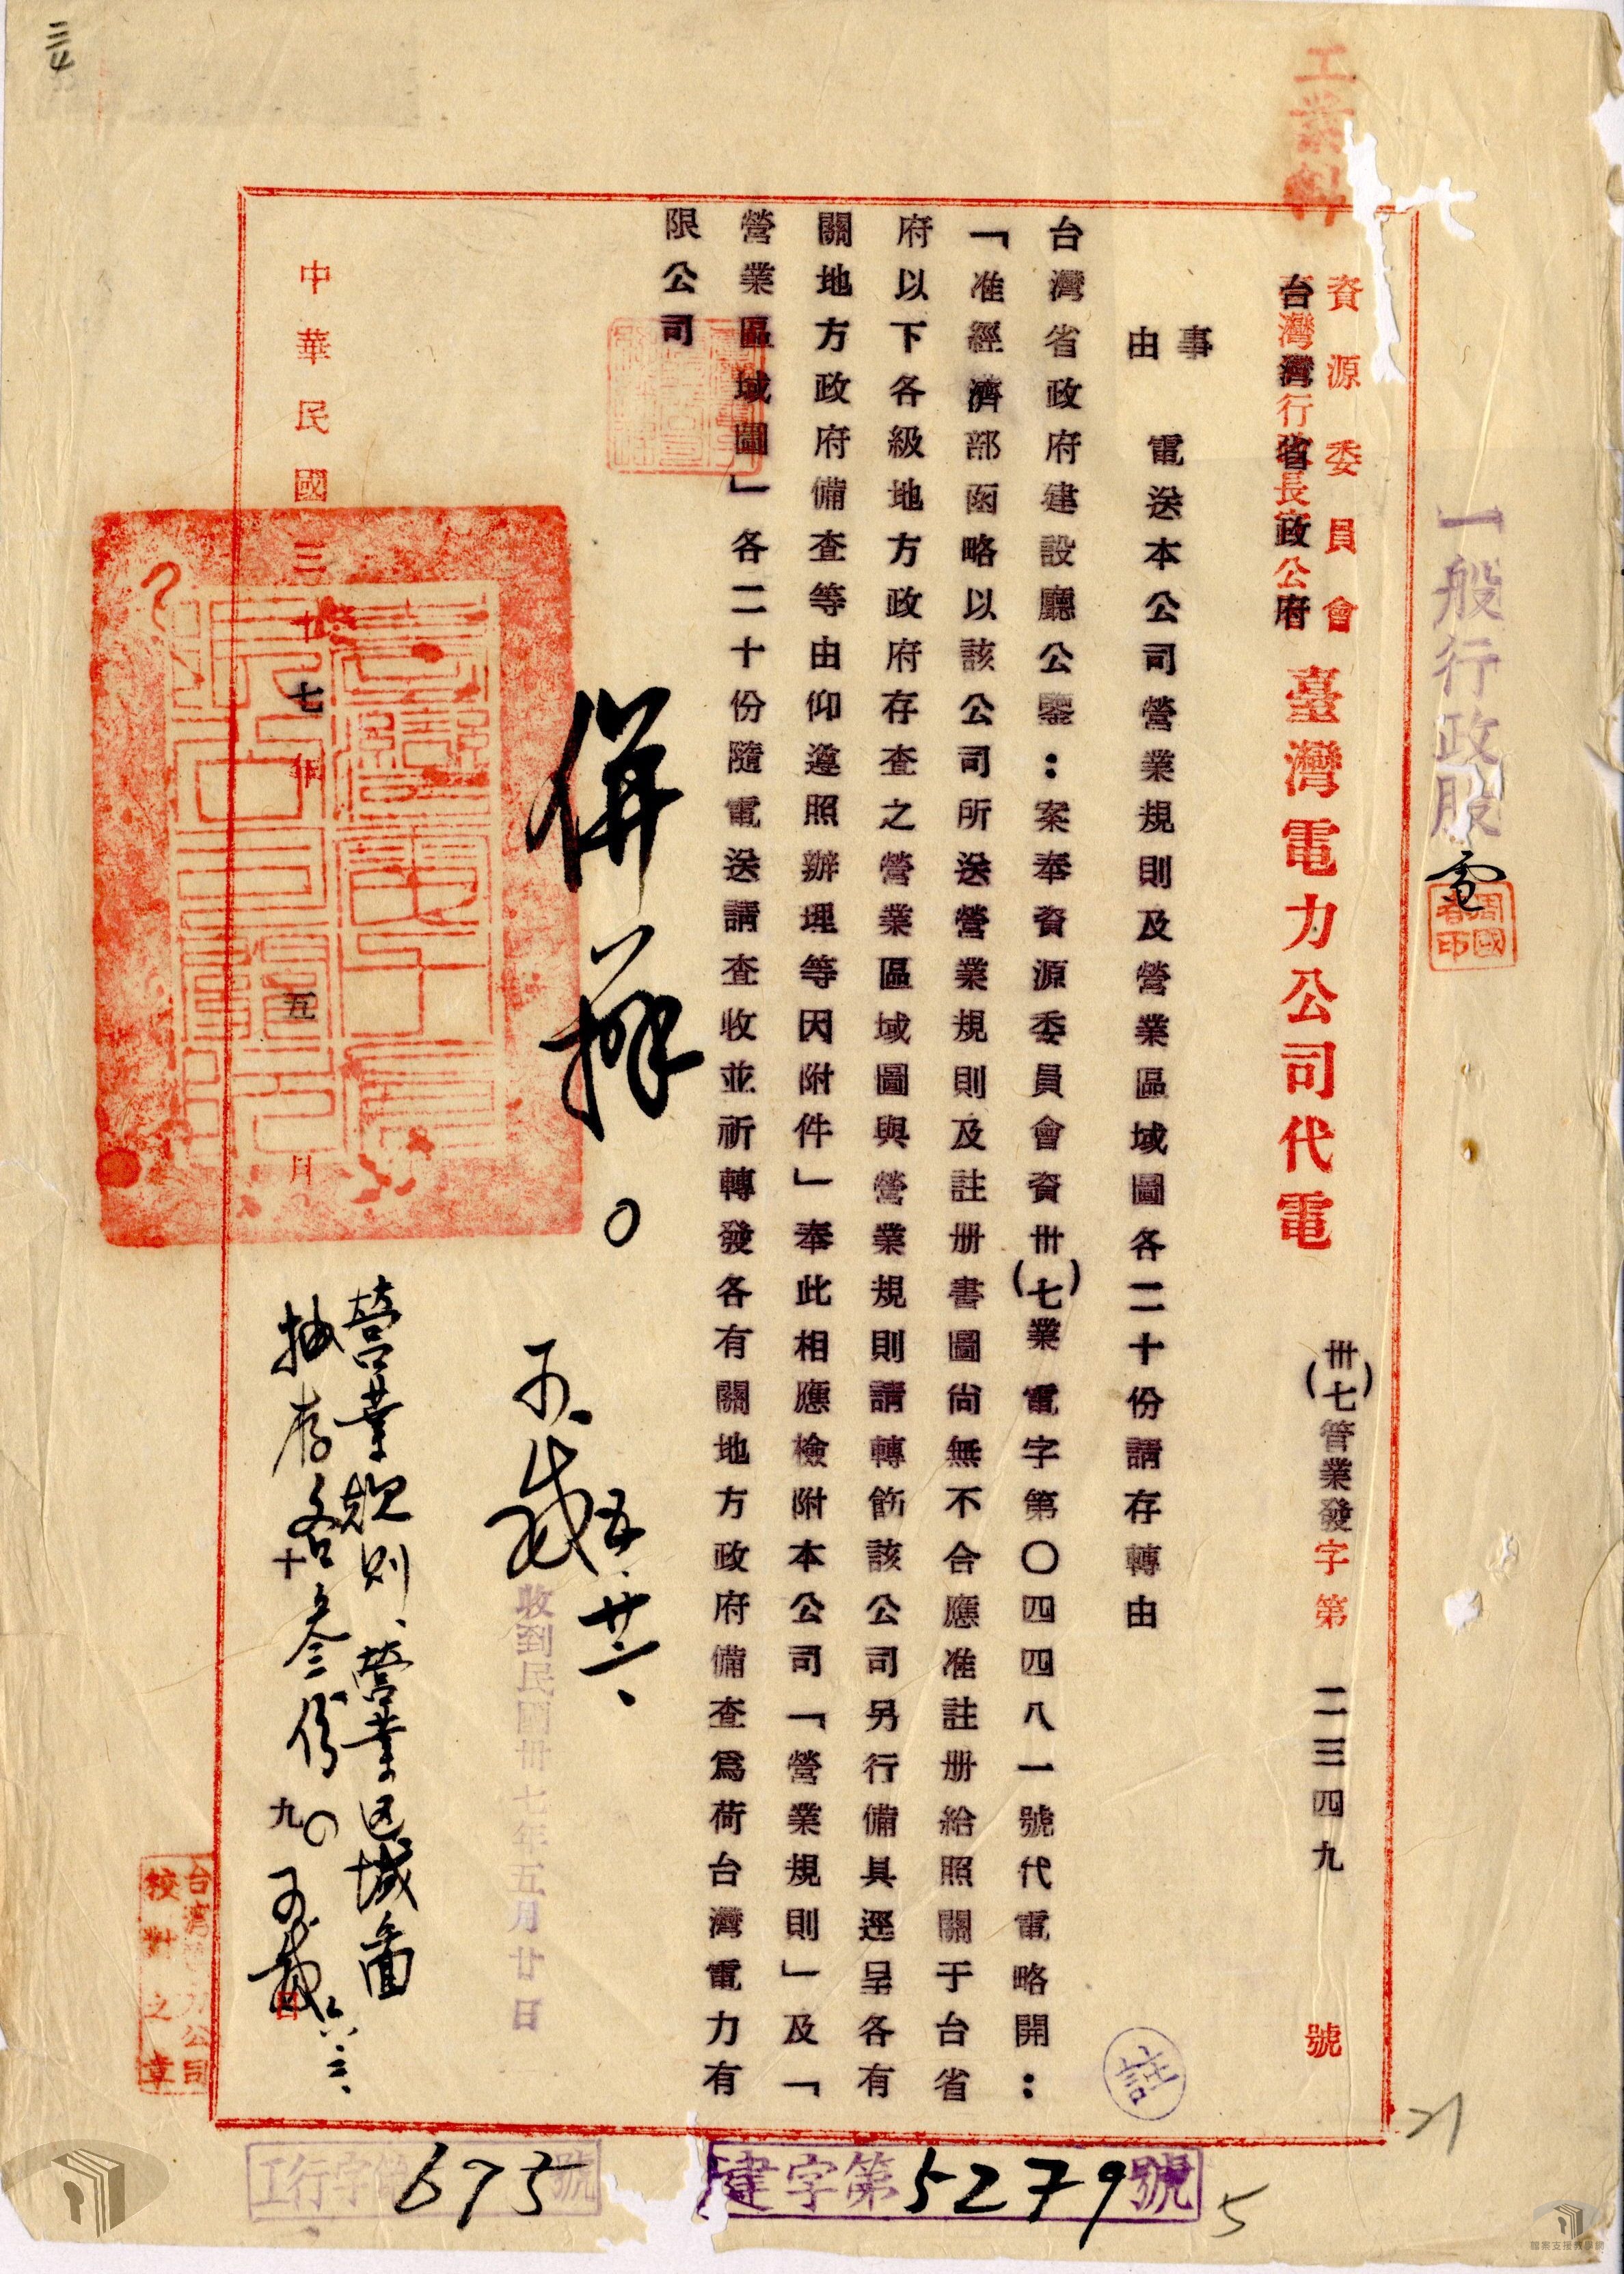 工業科
一般行政股
電
周國春印
資源委員會
台灣省政府
臺灣電力公司代電
卅(七)管業發字第二三四九號
事由
電送本公司營業規則及營業區域圖各二十份請存轉由
台灣省政府建設廳公鑒：案奉資源委員會資卅(七)業電字第〇四四八一號代電略開：
「准經濟部函略以該公司所送營業規則及註册書圖尚無不合應准註册給照關于台省
府以下各級地方政府存查之營業區域圖與營業規則請轉飭該公司另行備具逕呈各有
關地方政府備查等由仰遵照辦理等因附件」奉此相應檢附本公司「營業規則」及「
營業區域圖」各二十份隨電送請查收並祈轉發各有關地方政府備查爲荷台灣電力有
限公司
併擬。
五.廿一、
收到民國卅七年五月廿日
營業規則、營業区域圖
抽存各十叁份。
六.三、
中華民國三十七年五月十九日
台灣電力公司
校對之章
建字第5279號
工行字第675號
21
5
檔案支援教學網